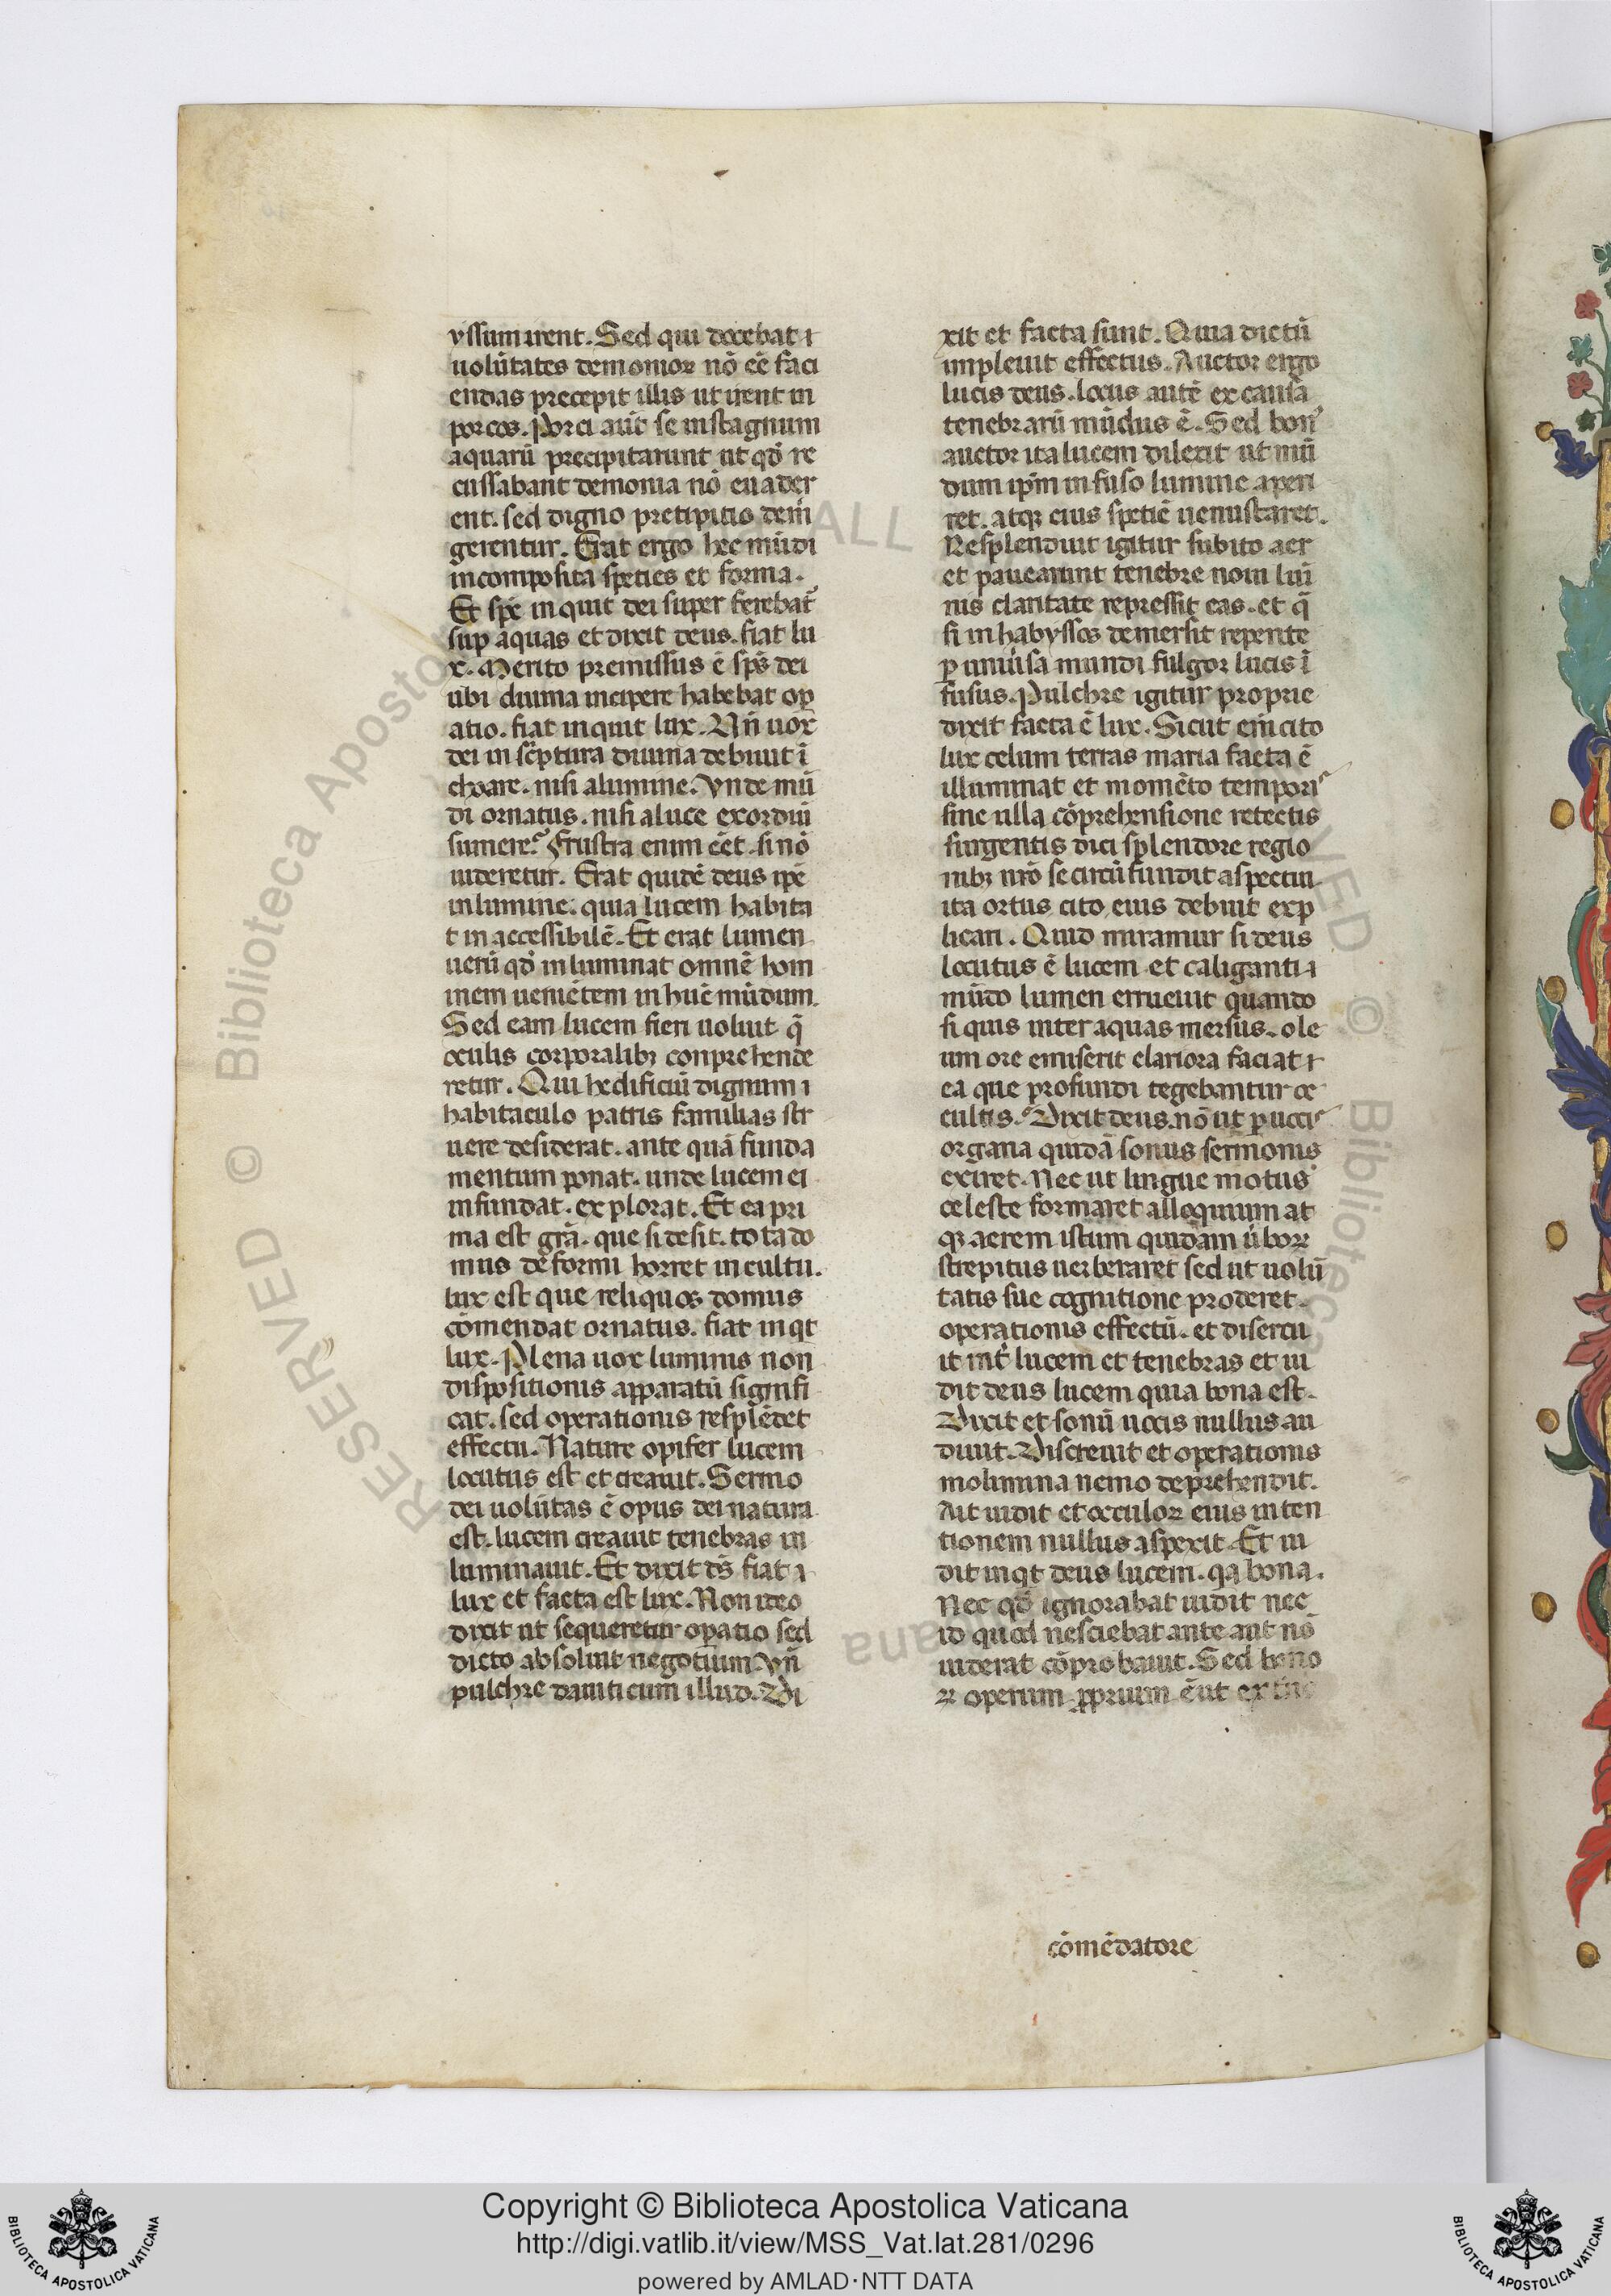 yssum irent. Sed qui docebat i
uolūtates demonioꝝ nō eē faci
endas precepit illis ut irent in
porcos. Porci aūt se in stagnum
aquarū precipitarunt ut qđ re
cussabant demonia nō euader
ent. sed digno pretipitio dem̄
gerentur. Erat ergo hec mūdi
incomposita species et forma.
Et spē inquit dei super ferebat᷑
sup aquas et dixit deus. fiat lu
x. Merito premissus ē sp̄s dei
ubi diuina incipere habebat op̱
atio. fiat inquit lux. Vn̄ uox
dei in sc̄ptura diuina debuit ī
choare. nisi a lumine. Vnde mū
di ornatus. nisi a luce exordiū
sumere? Frustra enim eēt. si nō
uideretur. Erat quidē deus ip̄e
in lumine. quia lucem habita
t in accessibilē. Et erat lumen
uerū qđ inluminat omnē hom
inem ueniētem in hūc mūdum.
Sed eam lucem fieri uoluit q̄
oculis corporalibꝫ conprehende
retur. Qui hedificiū dignum i
habitaculo patris familias str
uere desiderat. ante quā funda
mentum ponat. unde lucem ei
infundat. explorat. Et ea pri
ma est grā. que si desit. tota do
mus deformi horret in cultu.
lux est que reliquos domus
cōmendat ornatus. fiat inqt
lux. Plena uox luminis non
dispositionis apparatū signifi
cat. sed operationis resplēdet
effectu. Nature opifer lucem
locutus est et creauit. Sermo
dei uolūtas ē opus dei natura
est. lucem creauit tenebras in
luminauit. Et dixit dꝰs fiat i
lux et facta est lux. Non ideo
dixit ut sequeretur oꝑatio sed
dicto absoluit negotium. Vn̄
pulchre dauiticum illud. Di
xit et facta sunt. Quia dictū
impleuit effectus. Auctor ergo
lucis deus. locus autē ex causa
tenebrarū mūdus ē. Sed bonꝰ
auctor ita lucem dilexit ut mū
dum ip̄m infuso lumine aperi
ret. atqꝫ eius spetiē uenustaret.
Resplenduit igitur subito aer
et pauearunt tenebre noui lui
nis claritate repressit eas. et q̄
si in habyssos demersit repente
ꝑ uniūsa mundi fulgor lucis ī
fusus. Pulchre igitur proprie
dixit facta ē lux. Sicut em̄ cito
lux celum terras maria facta ē
illuminat et momēto temporiˢ
sine ulla cōprehensione retectis
surgentis diei splendore regio
nibꝫ nrō se circūfundit aspectui
ita ortus cito eius debuit exp
licari. Quid miramur si deus
locutus ē lucem et caliganti i
mūdo lumen erruuit quando
si quis inter aquas mersus. ole
um ore emiserit clariora faciat i
ea que profundi tegebantur oc
cultis. Dixit deus. nō ut ꝑ uociˢ
organa quidā sonus sermonis
exiret. Nec ut lingue motus
celeste formaret alloquium at
qꝫ aerem istum quidam ūboꝝ
strepitus uerberaret sed ut uolū
tatis sue cognitione proderet.
operationis effectū. et discreu
it int̄ lucem et tenebras et ui
dit deus lucem quia bona est.
Dixit et sonū uocis nullus au
diuit. Discreuit et operationis
molimina nemo deprehendit.
Ait uidit et oculoꝝ eius inten
tionem nullus aspexit. Et ui
dit inqt deus lucem. qa bona.
Nec qđ ignorabat uidit nec
id quod nesciebat ante aut nō
uiderat cōprobauit. Sed bono
ꝝ operum ꝓprium ē ut ex
cōmēdatore
RESERVED © Biblioteca Aposto
ALL
VED © Biblioteca
ana
Copyright © Biblioteca Apostolica Vaticana
http://digi.vatlib.it/view/MSS_Vat.lat.281/0296
powered by AMLAD·NTT DATA
BIBLIOTECA APOSTOLICA VATICANA
BIBLIOTECA APOSTOLICA VATICANA